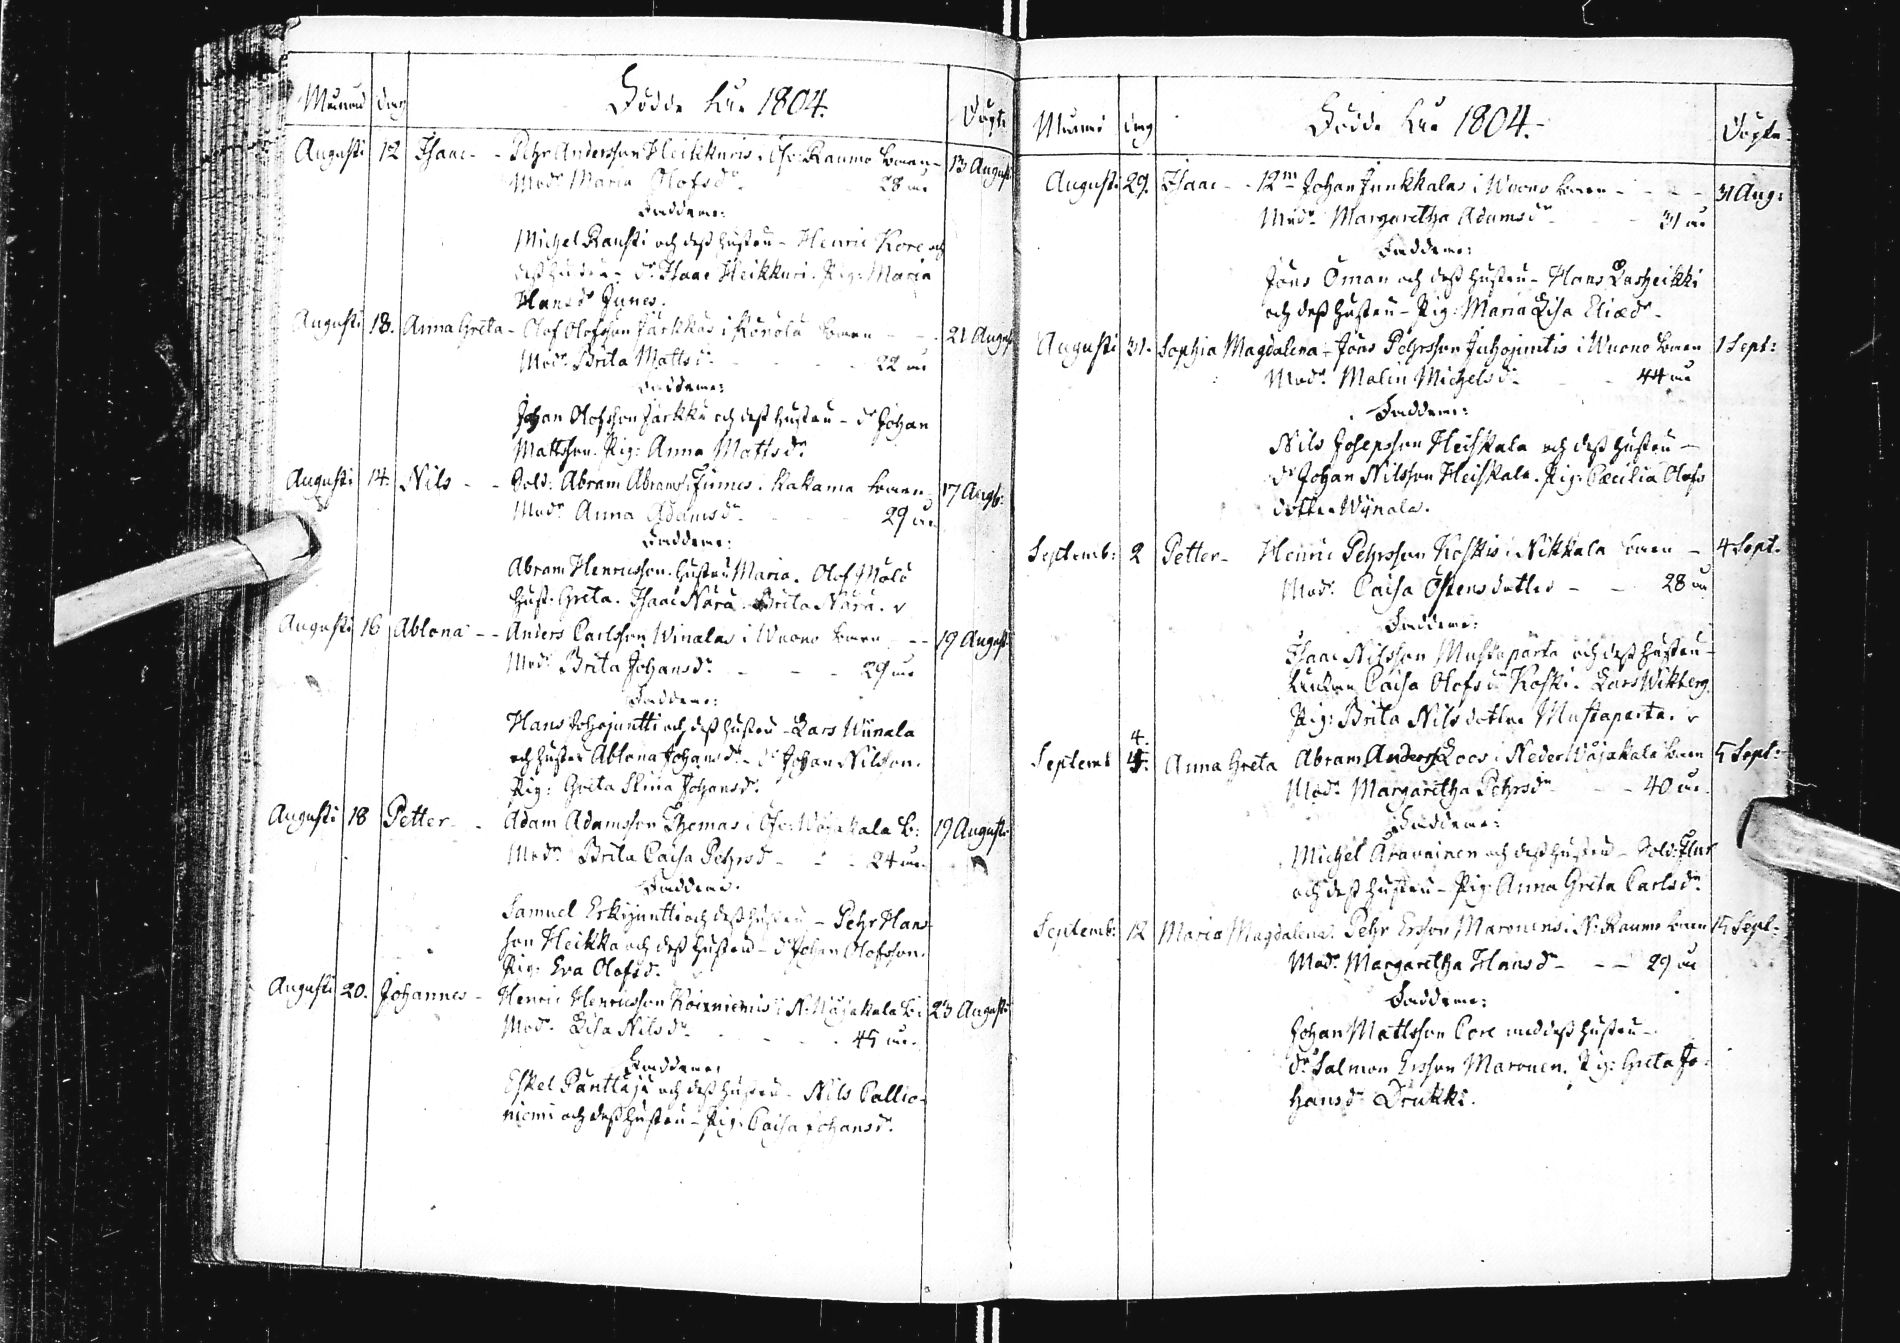 Månad dag Födde År 1804. Döpte
Augusti 12 Isaac - - Pehr Andersson Heikkuris i Ofv: Raumo barn - 13 August
Modr Maria Olofsdr 28 år
Faddrar:
Michel Rausti och dess hustru - Henric Kore och
dess hustru - dr Isaac Heikkuri. Pig: Maria
Hansdr Junes.
Augusti 18. Anna Greta - Olof Olofsson Järkkäs i Korola barn - - 21 August
Modr Brita Mattsdr - - - 22 år
Faddrar:
Johan Olofsson Järkkä och dess hustru - dr Johan
Mattsson. Pig: Anna Mattsdr
Augusti 14. Nils - - Sold: Abram Abrams: Junnes i Kakama barn 17 Aug:
Modr Anna Adamsdr 29 år
Faddrar:
Abram Henricsson. hustru Maria. Olof Målö
hust: Greta. Isaac Nara. Brita Nara.
Augusti 16 Ablona - - Anders Carlsson Winalas i Wuono barn - - 19 August
Modr Brita Johansdr - - - 29 år
Faddrar:
Hans Juhojuntti och dess hustru - Lars Wiinala
och hustru Ablona Johansdr - dr Johan Nilsson.
Pig: Greta Stina Johansdr
Augusti 18 Petter - - Adam Adamsson Thomas i Ofv: Wojakala b: 19 Augusti
Modr Brita Caisa Pehrsdr - - - 24 år
Faddrar:
Samuel Erkijuntti och dess hustru - Pehr Hans-
son Heikka och dess hustru - dr Johan Olofsson.
Pig: Eva Olofsdr
Augusti 20. Johannes - Henric Henricsson Koivuniemis i N: Wojakala b: 23 Augusti
Modr Lisa Nilsdr - - - 45 år
Faddrar:
Eskel Panttaja och dess hustru - Nils Pallio-
niemi och dess hustru - Pig: Caisa Johansdr
Månad dag Födde År 1804. - Döpte
August: 29. Isaac - - 12m Johan Junkkalas i Wuono barn - - - - 31 Aug:
Modr Margaretha Adamsdr - - 31 år
Faddrar:
Jöns Öman och dess hustru - Hans Lasheikki
och dess hustru - Pig: Maria Lisa Eliædr
Augusti 31. Sophia Magdalena - Jöns Pehrsson Juhojuntis i Wuono barn 1 Sept:
Modr Malin Michelsdr - - 44 år
Faddrar:
Nils Josepsson Heiskala och dess hustru -
dr Johan Nilsson Heiskala. Pig: Cæcilia Olofs
dotter Wynala.
Septemb: 2 Petter - Henric Pehrsson Koskis i Nikkala barn - 4 Sept.
Modr Caisa Östensdotter - - 28 år
Faddrar:
Isaac Nilsson Mustaparta och dess hustru -
Caisa Olofsdr Koski. Lars Wikberg.
Pig: Brita Nilsdotter Mustaparta.
4.
Septemb 5. Anna Greta Abram Anders: Loos i Neder Wojakala barn 5 Sept:
Modr Margaretha Pehrsdr - - 40 år
Faddrar:
Michel Aravainen och dess hustru - Sold: Flur
och dess hustru - Pig: Anna Greta Carlsdr
Septemb: 12 Maria Magdalena. Pehr Ersson Maronens i N: Raumo barn 15 Sept:
Modr Margaretha Hansdr - - - 29 år
Faddrar:
Johan Mattsson Core med dess hustru -
dr Salmon Ersson Maronen. Pig: Greta Jo-
hansdr Drukki.